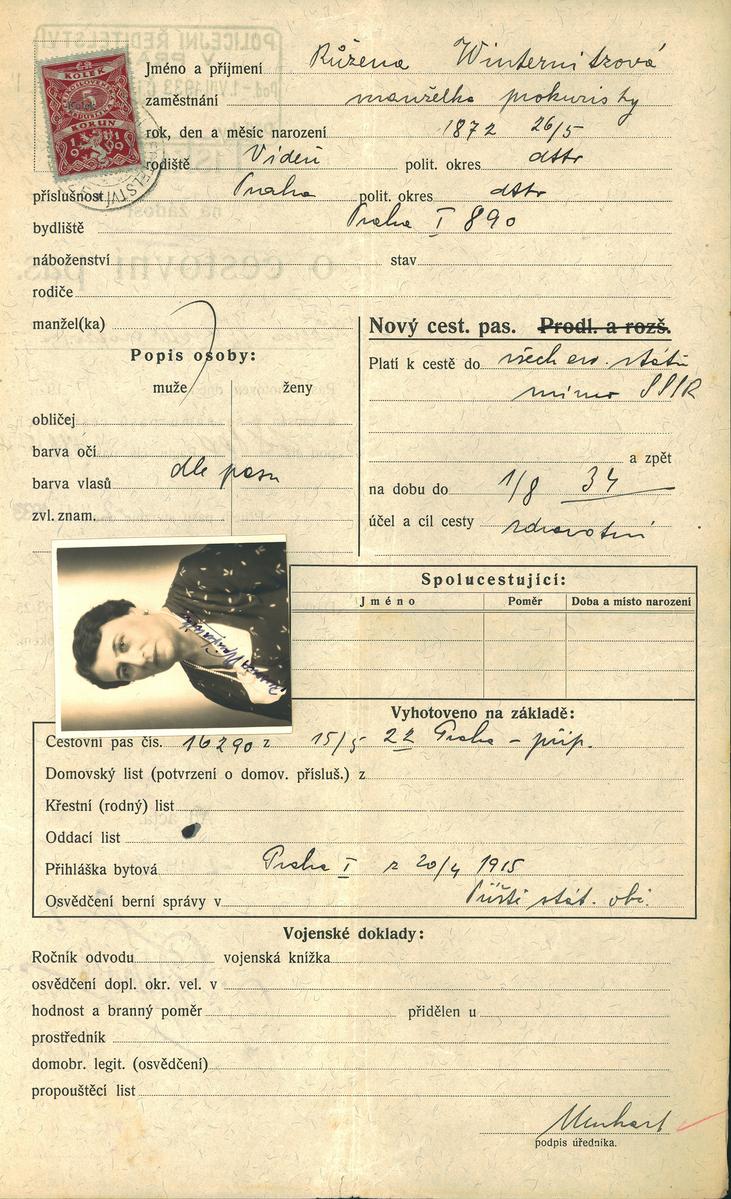 KOLEK
5
KORUN
1919
Jméno a příjmení Růžena Winternitzová
zaměstnání manželka prokuristy
rok, den a měsíc narození 1872 26/5
rodiště Vídeň polit. okres dtto
příslušnost Praha polit. okres dtto
bydliště Praha I 890
náboženství stav
rodiče
manžel(ka)
Popis osoby:
muže ženy
obličej
barva očí
barva vlasů dle pasu
zvl. znam.
Nový cest. pas. Prodl. a rozš.
Platí k cestě do všech ev. států
mimo SSSR
a zpět
na dobu do 1/8 34
účel a cíl cesty zdravotní
Spolucestující:
Jméno Poměr Doba a místo narození
Vyhotoveno na základě:
Cestovní pas čís. 16290 z 15/5 22 Praha - příp.
Domovský list (potvrzení o domov. přísluš.) z
Křestní (rodný) list
Oddací list
Přihláška bytová Praha I z 20/4 1915
Osvědčení berní správy v stát. obč.
Vojenské doklady:
Ročník odvodu vojenská knížka
osvědčení dopl. okr. vel. v
hodnost a branný poměr přidělen u
prostředník
domobr. legit. (osvědčení)
propouštěcí list
Menhart
podpis úředníka.